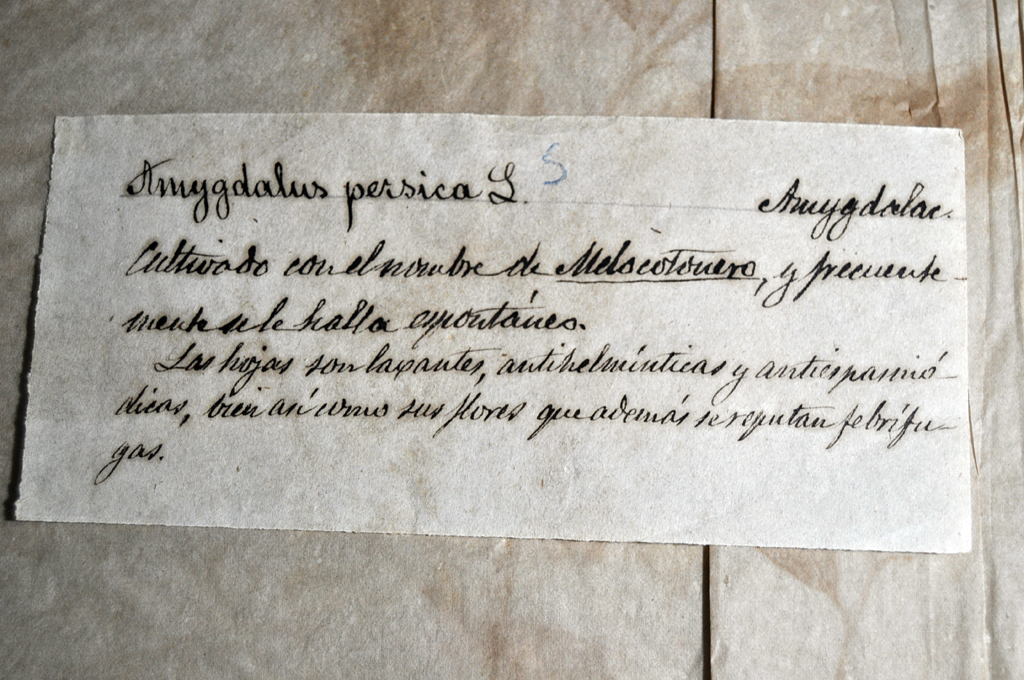 Amygdalus persica L. 5 Amygdalac.
Cultivado con el nombre de Melocotonero, y frecuente-
mente se le halla espontáneo.
Las hojas son laxantes, antihelmínticas y antiespasmó-
dicas, bien así como sus flores que además se reputan febrífu-
gas.